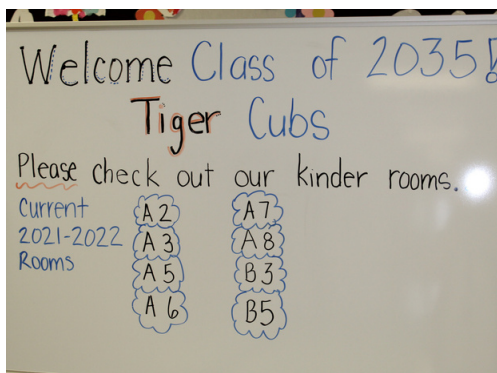 Welcome Class of 2035!
Tiger Cubs
Please check out our kinder rooms.
Current
2021-2022
Rooms
A2
A3
A5
A6
A7
A8
B3
B5